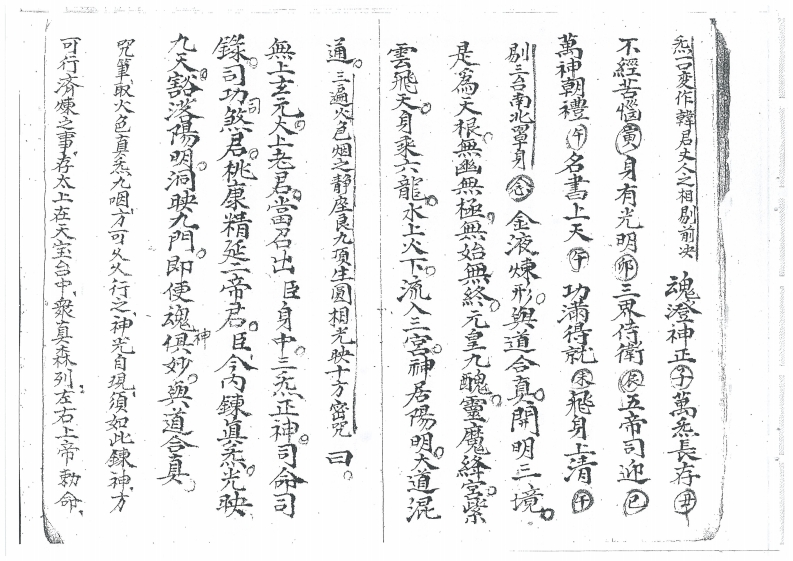 炁一口变作韓君丈人之相剔前决 魂澄神正子萬炁長存丑
不經苦惱寅身有光明卯三界侍衛辰五帝司迎巳
萬神朝禮午名書上天午功滿得就未飛身上清午
剔三台南北罩身念 金液煉形與道合真開明三境
是為天根無幽無極無始無終元皇九醜靈魔絳宮紫
雲飛天身乘六龍水上火下流入三宮神居陽明大道混
通三遍火色烟之靜座良九項生圓相光映十方密咒曰
無上玄元太上老君當召出臣身中三炁正神司命司
錄司功司煞君桃康精延二帝君臣今內鍊真炁光映
九天豁落陽明洞映九門即便魂神俱妙與道合真
咒畢取火色真炁九咽方可久久行之神光自現須如此鍊神方
可行濟煉之事存太上在天宝台中衆真森列左右上帝勅命